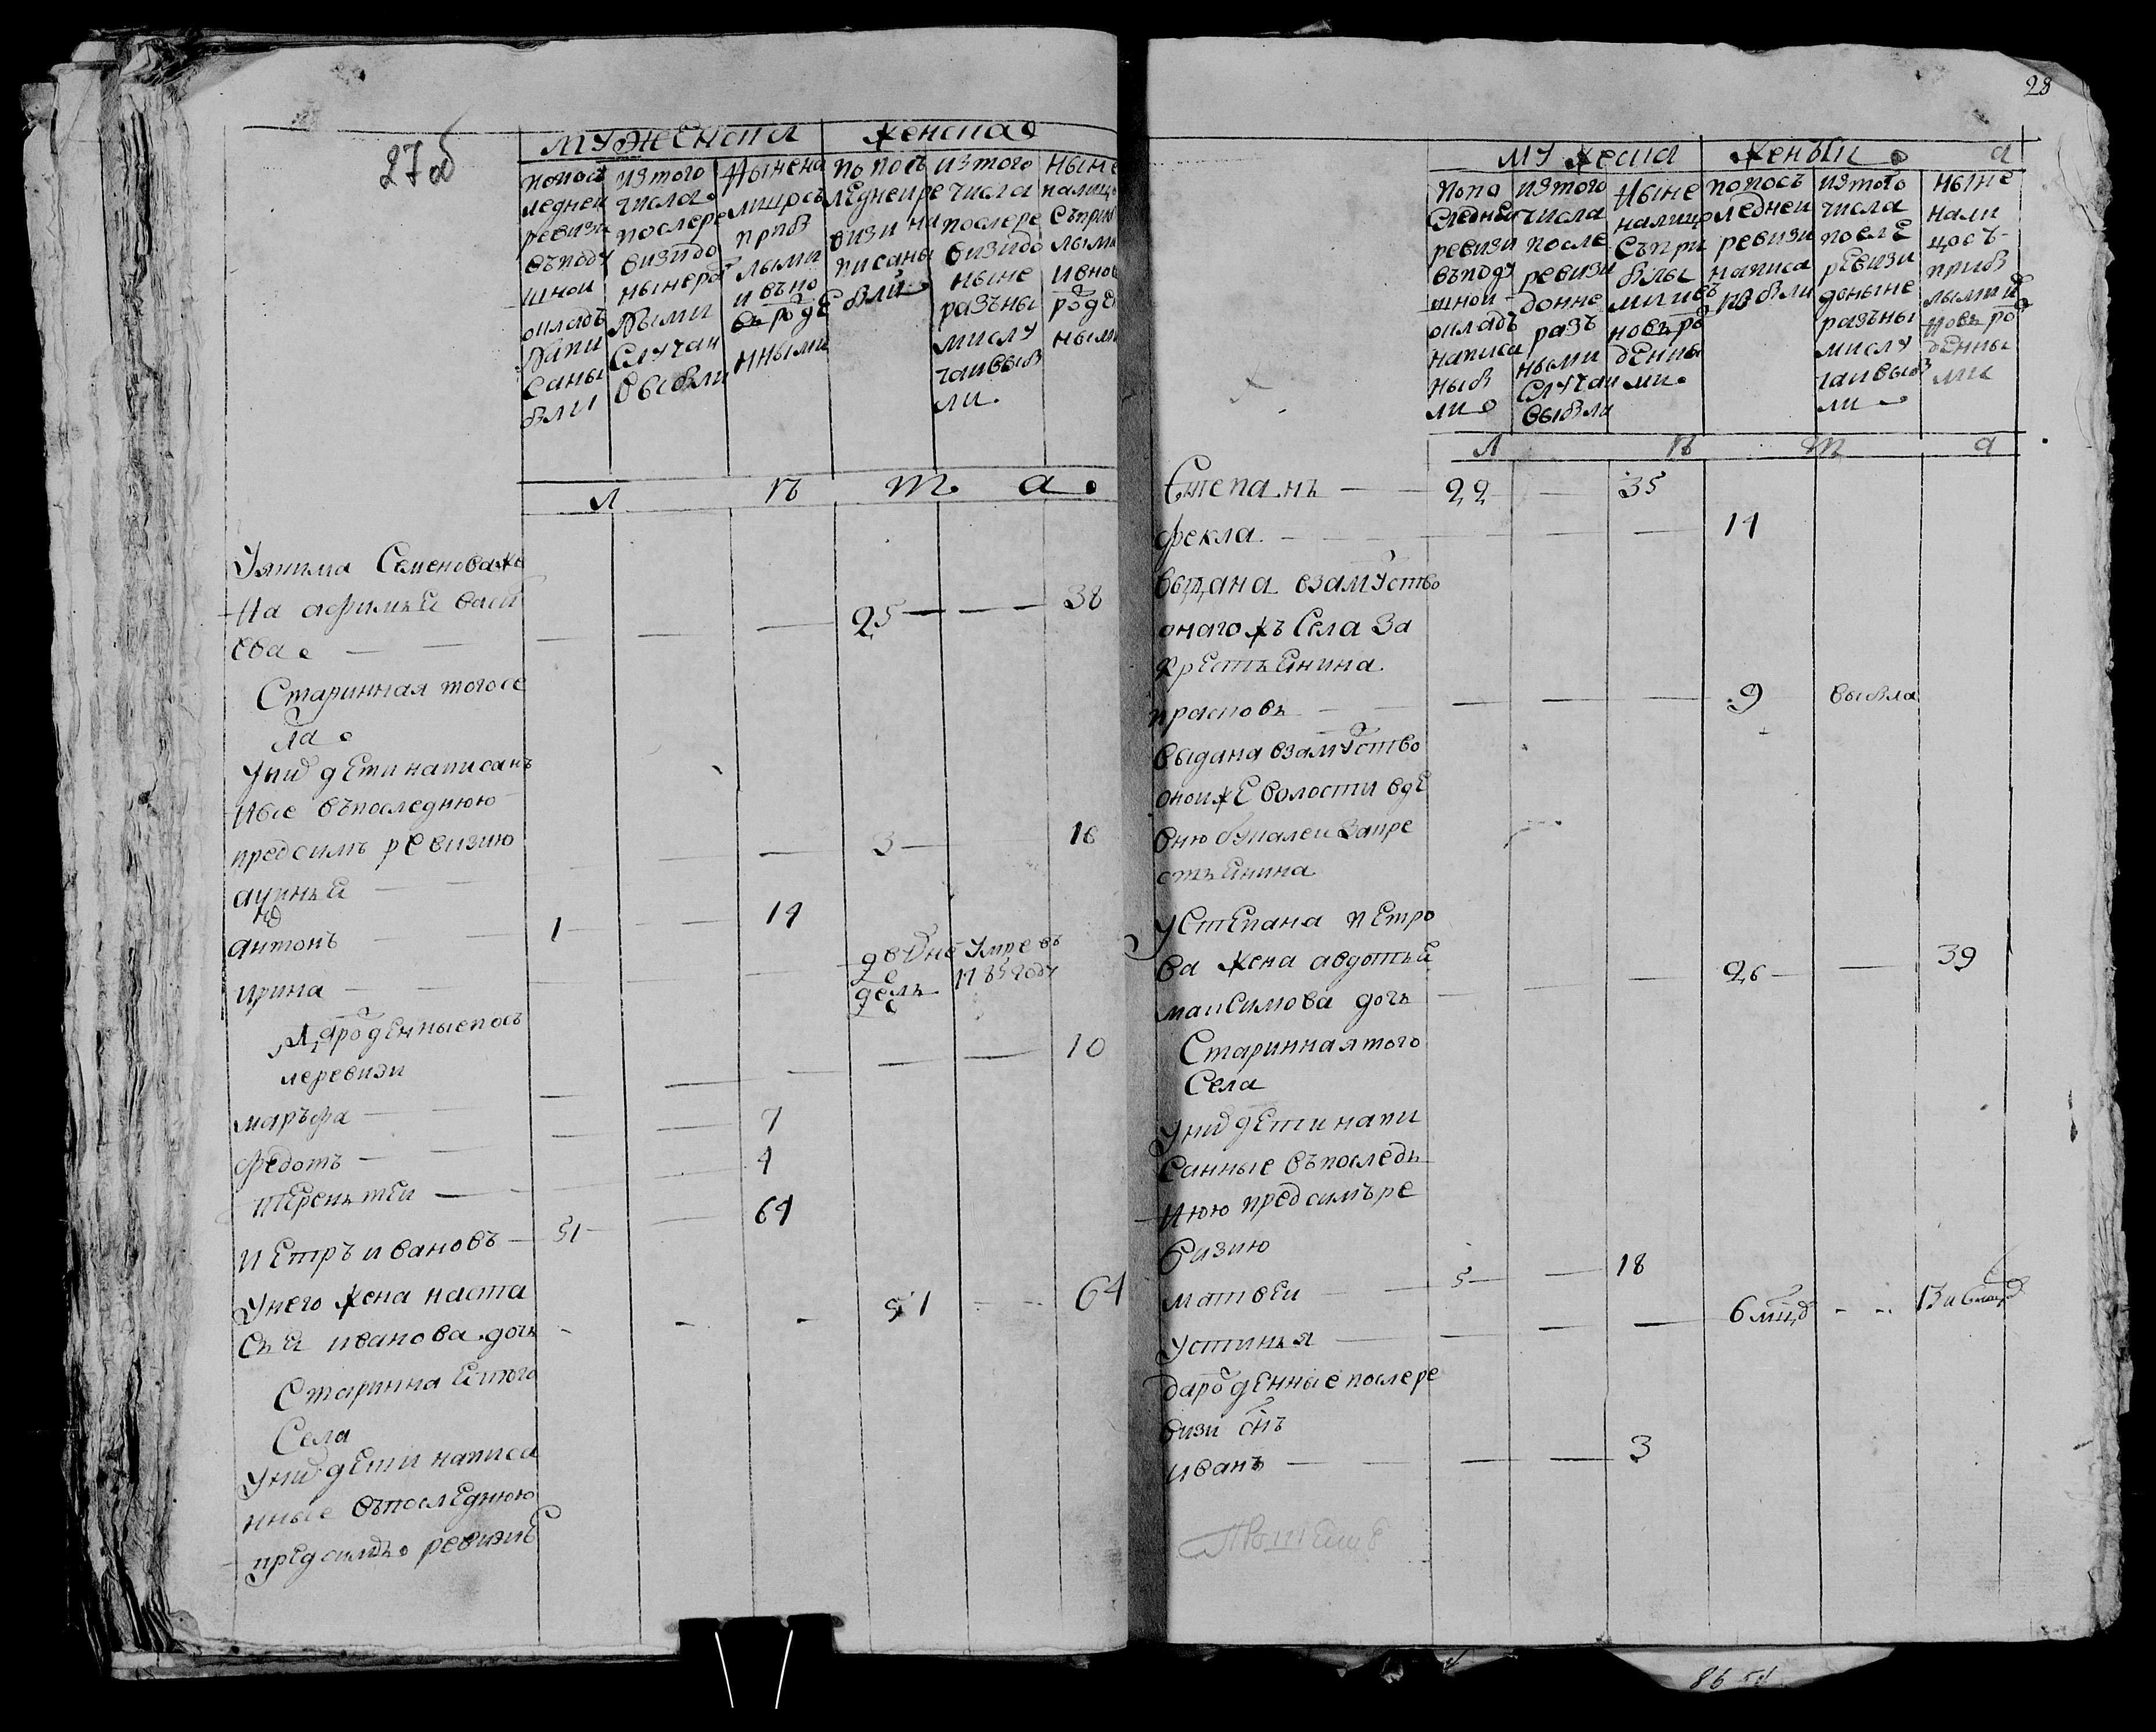 27об
мужеска женска
попос
ледней
ревизи
въподу
шной
окладъ
напи
саны
были
изтого
числа
послере
визидо
нынераз
ными
случаи
выбыли
Нынена
лицосъ
приб
лыми
ивъно
въ роде
нными
попосъ
леднейре
визи на
писаны
были
изтого
числа
послере
визидо
ныне
разъны
мислу
чаивыб
ли
ныне
налицо
съприб
лыми
ивнов
роде
ными
л ѣ т а
Уякима Семенова же
на афимья васи
ева 25 38
Старинная тогосе
ла
Унихдети написанъ
ные въпоследнюю
предсимъ ревизию
акулинья 3 16
антонъ 1 14
ирина две умре въ
недель 1785 году
Народенныепось
леревизи
марьфа 10
федотъ 7
терентеи 4
петръ ивановъ 51 64
Унего жена наста
сья иванова дочь 51 64
Стариннаятого
Села
Унихдети написа
нные въпоследнюю
предсимъ ревизию
28
мужеска женьска
попо
следней
ревизи
въподу
шной
окладъ
написа
ныб
ли
изтого
числа
после
ревизи
доныне
разъ
ными
случаи
выбыли
Ныне
налицо
съпри
былы
мии въ
новьро
денны
ми
попосъ
ледней
ревизи
написа
ны были
изтого
числа
после
ревизи
доныне
разъны
мислу
чаивыб
ли
ныне
нали
цосъ
приб
лыми и
новь ро
денны
ми
л ѣ т а
Степанъ 22 35
фекла 14
выдана взамуство
оногожъ Села за
крестьянина
прасковь 9 выбыла
выдана взамуство
онойже волости вде
вню за кре
стьянина
уСтепана петро
ва жена авдотья
максимова дочь 26 39
Стариннаятого
Села
Унихдетинапи
санные въпоследь
нюю предсимъре
визию
матвеи 5 18
устинья 6 мцъ 13 и 6 мцъ
народенныепослере
визи сынъ
иванъ 3